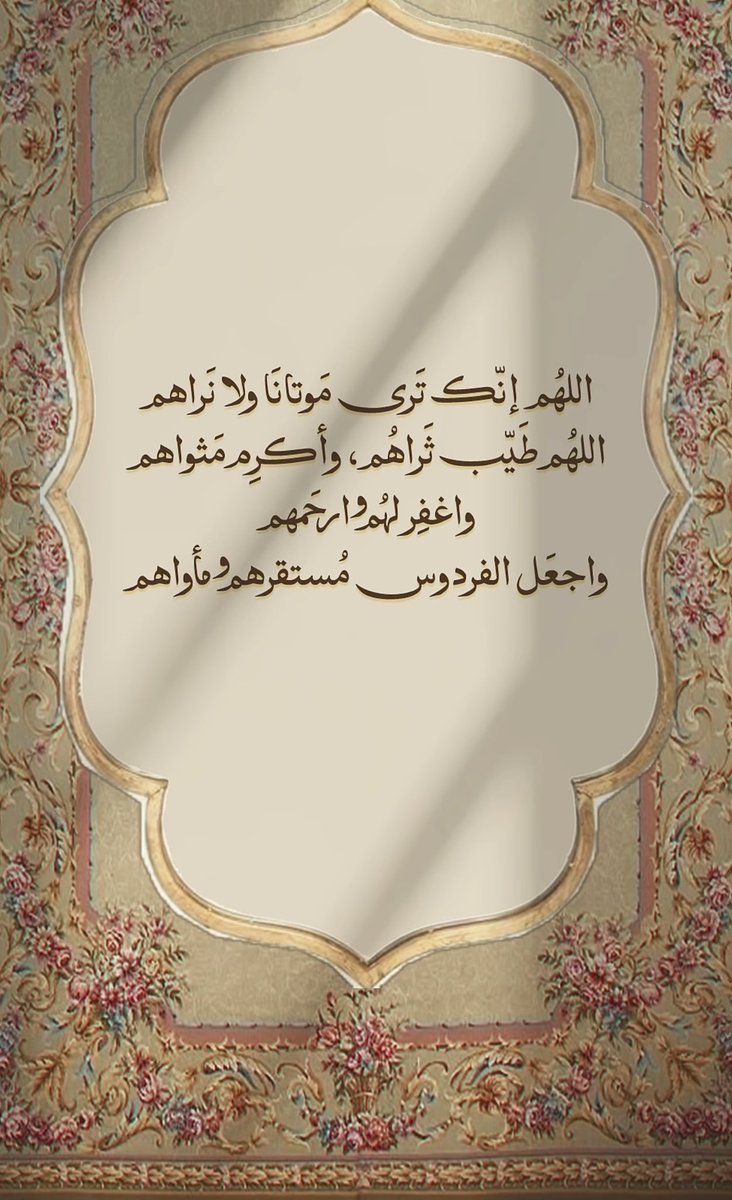 اللهُم إنّك تَرى مَوتانَا ولا نَراهم
اللهُم طَيّب ثَراهُم، وأكرِم مَثواهم
واغفِر لهُم وارحَمهم
واجعَل الفردوس مُستقرهم ومأواهم